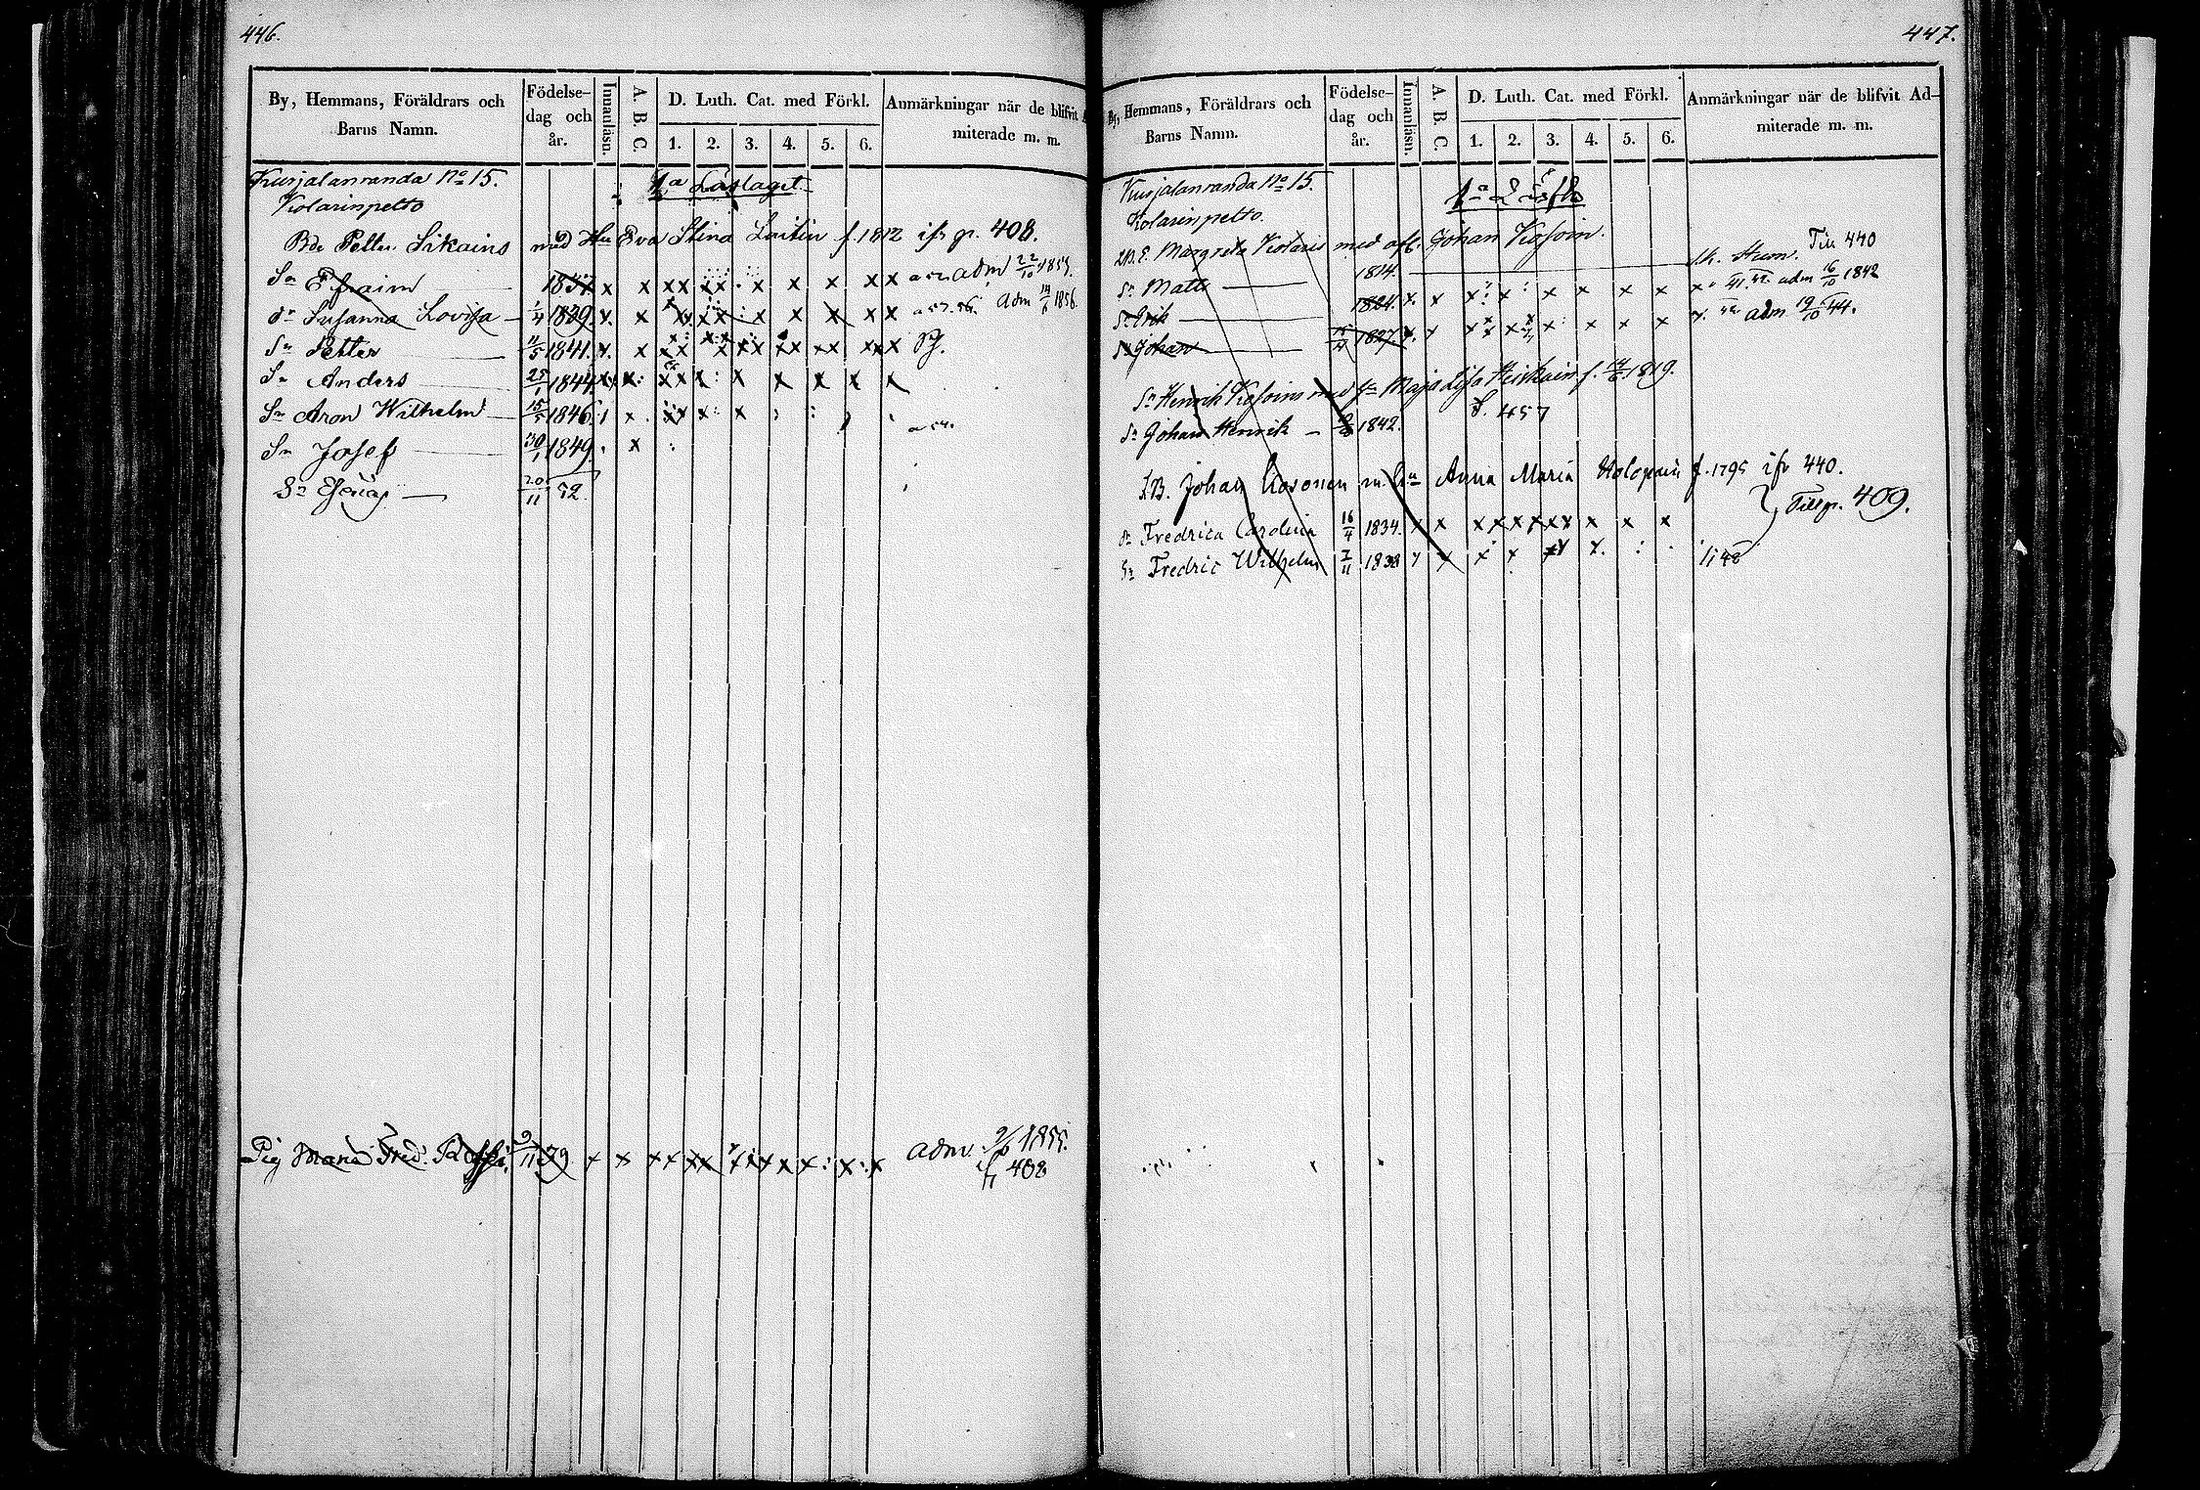 446.
By, Hemmans, Föräldrars och Barns Namn.
Födelse-dag och år.
Innanläsn.
A. B. C.
D. Luth. Cat. med Förkl.
1. 2. 3. 4. 5. 6.
Anmärkningar när de blifvit Ad-miterade m. m.
Kurjalanranda No 15. 1a Läslaget
Kolarinpetto
Bde Petter Sikains med Hu Eva Stina Laitin f. 1812 ifr p. 408.
Sn Efraim 1837 x x xx xx x x x x x x adm 22/10 1855.
dr Susanna Lovisa 1/4 1839. x x x xx x x x x x adm 14/6 1856.
Sn Petter 11/5 1841. x x
Sn Anders 25/1 1844 x x xx x x x x x
Sn Aron Wilhelm 15/5 1846 x x x x
Sn Josef 30/1 1849. x
Sn Esaias 20/11 52.
Pig Maria Fred. 9/11 39 x x x x x x x x x x x x x x adm. 1855.
ifr 408
447.
By, Hemmans, Föräldrars och Barns Namn.
Födelse-dag och år.
Innanläsn.
A. B. C.
D. Luth. Cat. med Förkl.
1. 2. 3. 4. 5. 6.
Anmärkningar när de blifvit Ad-miterade m. m.
Kurjalanranda No 15.
Kolarinpetto.
Margreta Kolaris med afl. Johan Kosoin. Till 440
Sn Matts 1814.
Sn Erik 1824. x x x x x x x x x adm 16/10 1842
Sn Johan 1827. x x x x x x x x adm 19/10 44.
Sn Henrik Kosoins med Maja Lisa f. 1819.
Sn Johan Henrik 1842. S. 457
Johan Kosonen m. Hu Anna Maria Kolopain f. 1795 ifr 440.
Till p. 409.
dr Fredrica Carolina 16/4 1834. x x x x x x x x x x x
Sn Fredric Wilhelm 7/11 1838 x x x x x x 48